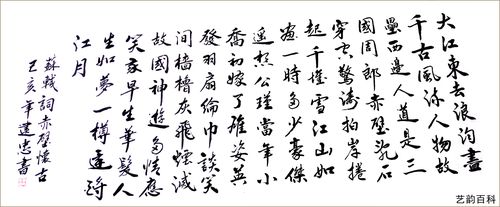 大江東去浪淘盡
千古風流人物故
壘西邊人道是三
國周郎赤壁亂石
穿空驚濤拍岸捲
起千堆雪江山如
畫一時多少豪傑
遥想公瑾當年小
喬初嫁了雄姿英
發羽扇倫巾談笑
間檣櫓灰飛煙滅
故國神遊多情應
笑我早生華髮人
生如夢一樽還酹
江月
蘇軾詞赤壁懷古
己亥年忠書
艺韵百科